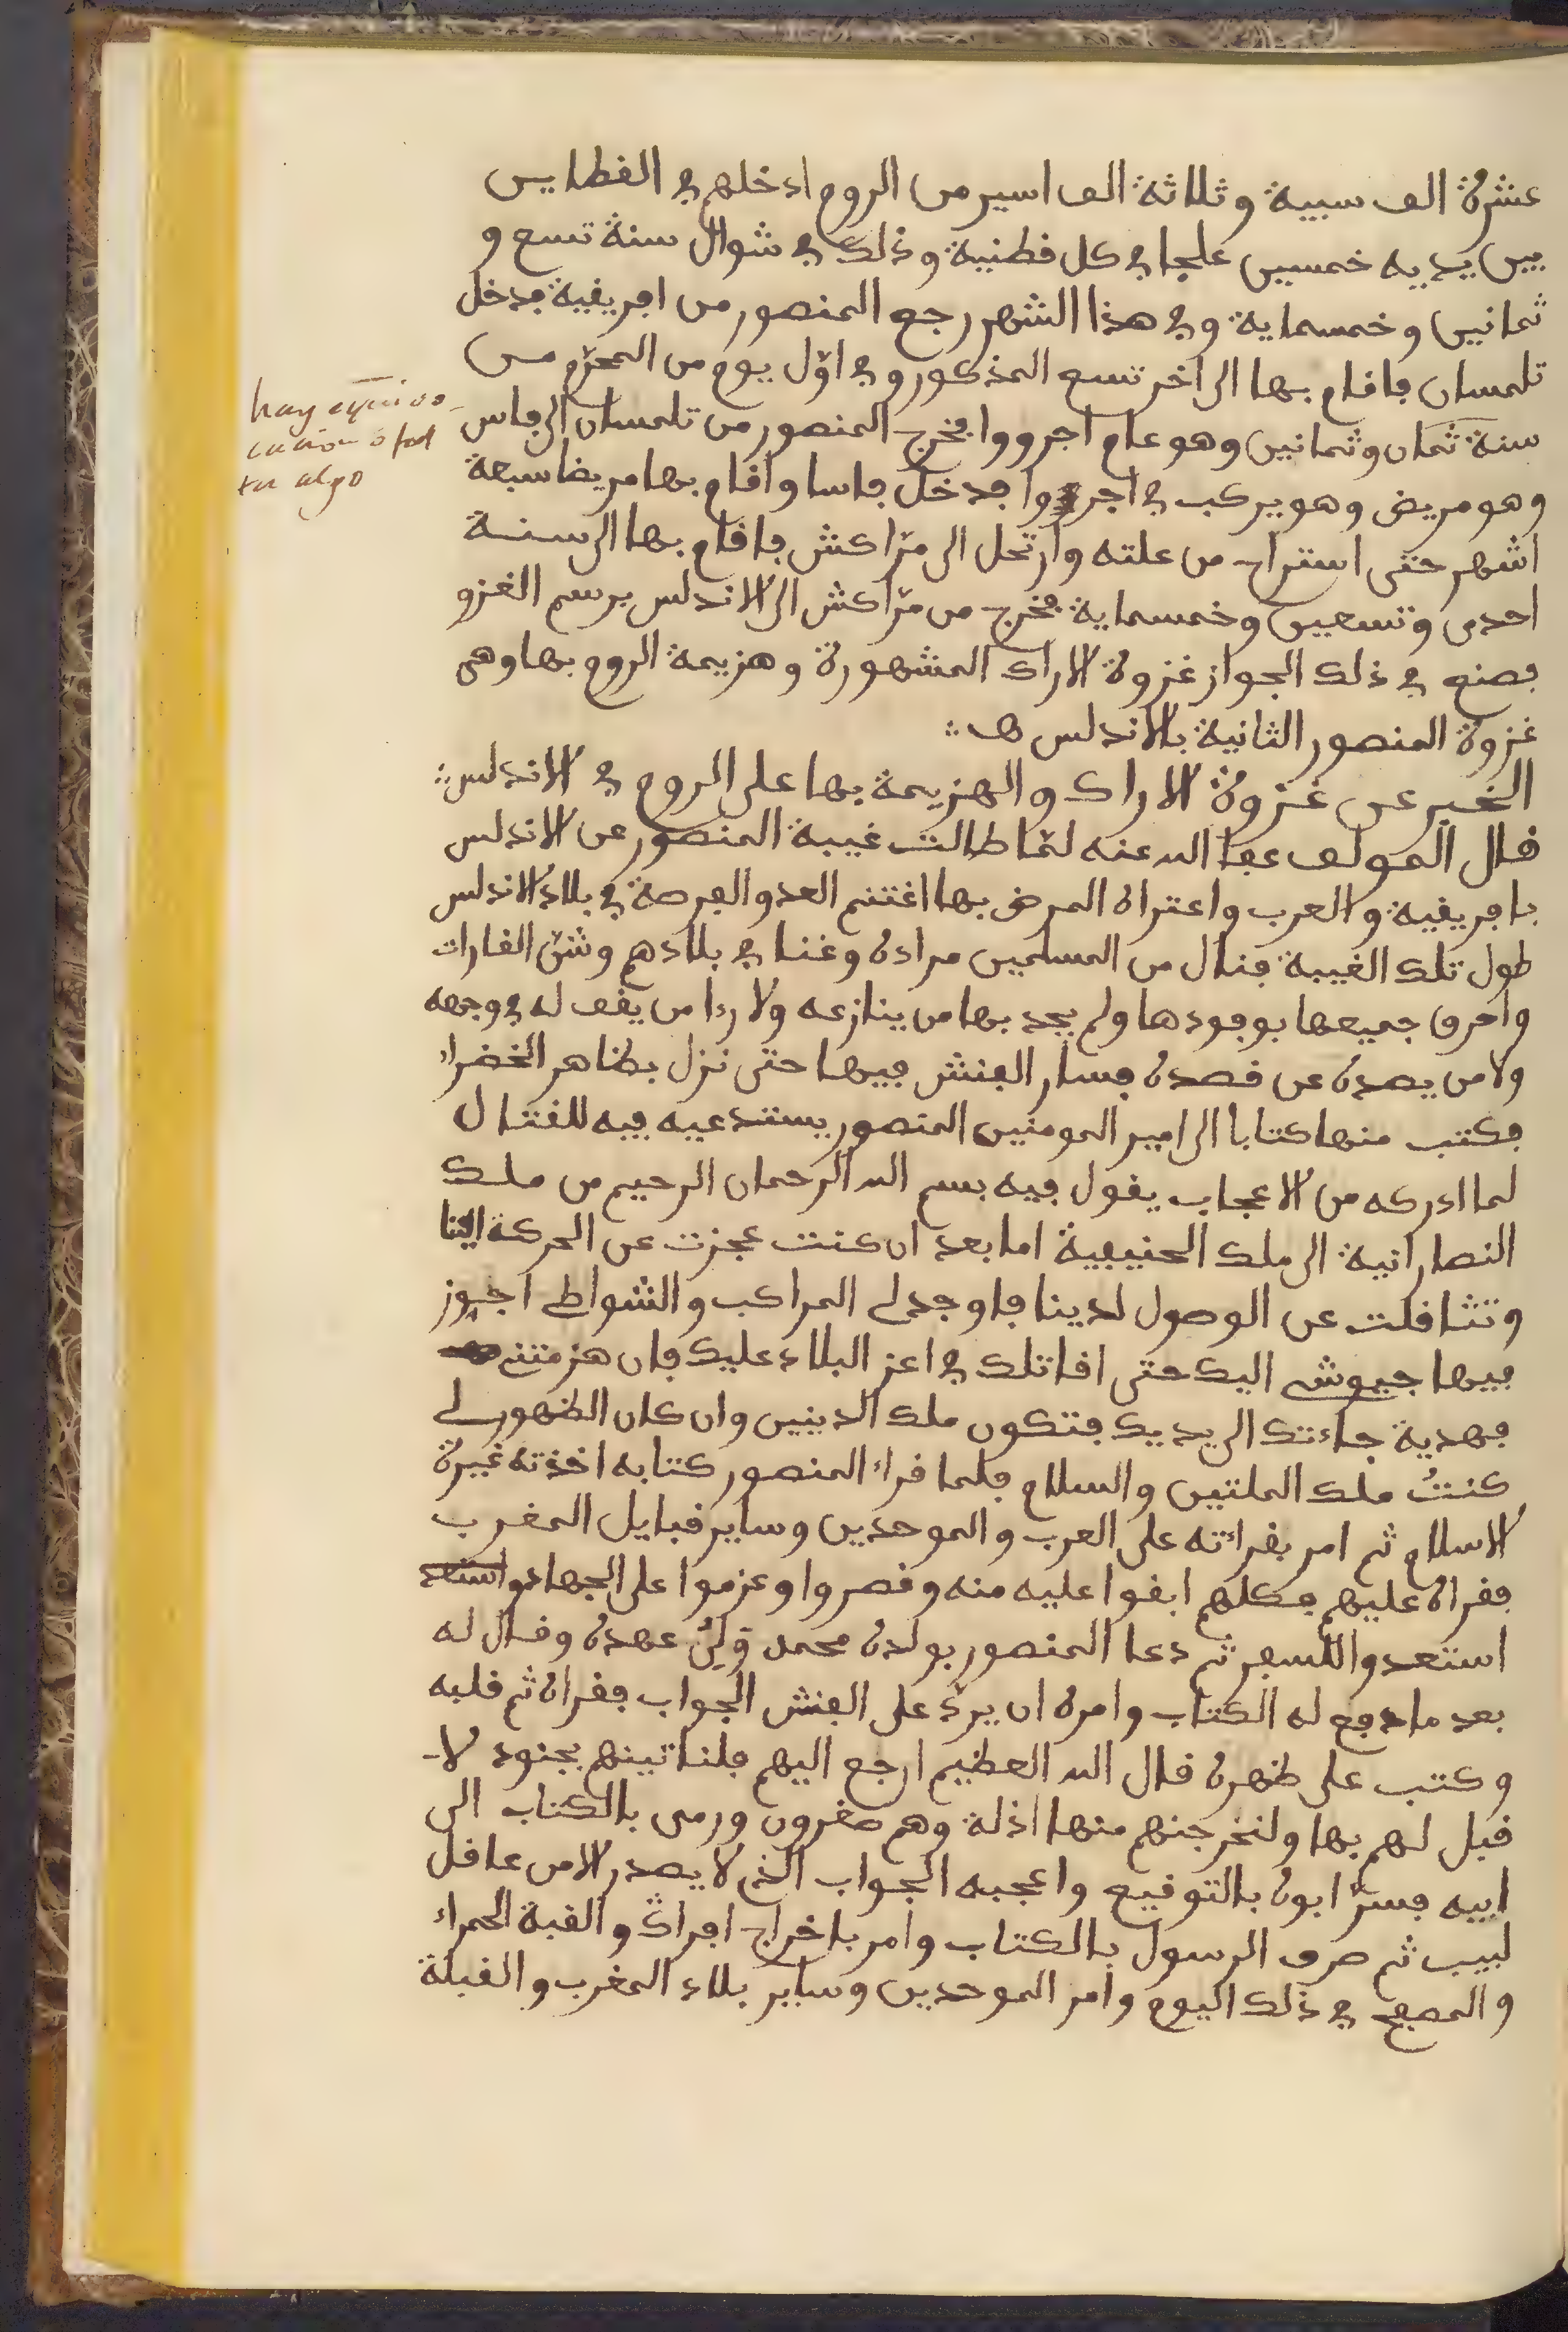 عشرة الف سبية وثلاثة الف اسير من الروم ادخلهم في القطايس
بين يديه خمسين علجا في كل قطنية وذلك في شوال سنة تسع و
ثمانين وخمسماية وفي هذا الشهر رجع المنصور من افريقية فدخل
تلمسان فاقام بها الى اخر تسع المذكور وفي اوّل يوم من المحرّم من
سنة ثمان وثمانين وهو عام اجرووا فخرج المنصور من تلمسان الى فاس
وهو مريض وهو يركب في اجرووا فدخل فاسا واقام بها مريضا سبعة
اشهر حتى استراح من علته وارتحل الى مرّاكش فاقام بها الى سنة
احدى وتسعين وخمسماية فخرج من مرّاكش الى الاندلس برسم الغزو
فصنع في ذلك الجواز غزوة الاراك المشهورة وهزيمة الروم بها وهى
غزوة المنصور الثانية بالاندلس
الخبر عن غزوة الاراك والهزيمة بها على الروم في الاندلس
قال المولف عفا الله عنه لمّا طالت غيبة المنصور عن الاندلس
بافريقية والعرب واعتراه المرض بها اغتنم العدو الفرصة في بلاد الاندلس
طول تلك الغيبة فنال من المسلمين مراده وغنا في بلادهم وشنّ الغارات
واحرق جميعها بوفودها ولم يجد بها من ينازعه ولا ردا من يقف له في وجهه
ولا من يصده عن قصده فسار الفنش فيها حتى نزل بظاهر الخضراء
فكتب منها كتابا الى امير المومنين المنصور يستدعيه فيه للقتال
لما ادركه من الاعجاب يقول فيه بسم الله الرحمان الرحيم من ملك
النصارانية الى ملك الحنيفية اما بعد ان كنت عجزت عن الحركة الينا
وتثاقلت عن الوصول لدينا فاوجد لى المراكب والشواطى اجوز
فيها جيوشى اليك حتى اقاتلك في اعز البلاد عليك فان هزمتنى
فهدية جاءتك الى يديك فتكون ملك الدينين وان كان الظهور لى
كنتُ ملك الملتين والسلام فلما قراء المنصور كتابه اخذته غيرة
الاسلام ثم امر بقراءته على العرب والموحدين وساير قبايل المغرب
فقراه عليهم فكلهم ابقوا عليه منه وقصروا وعزموا على الجهاد واستعد
استعدوا للسفر ثم دعا المنصور بولده محمد وَلِىّ عهده وقال له
بعد ما دفع له الكتاب وامره ان يردّ على الفنش الجواب فقراه ثم قلبه
وكتب على ظهره قال الله العظيم ارجع اليهم فلناتينهم بجنود لا
قبل لهم بها ولنخرجنهم منها اذلة وهم صغرون ورمى بالكتاب الى
ابيه فسرّ ابوه بالتوقيع واعجبه الجواب الذى لا يصدر الا من عاقل
لبيب ثم صرف الرسول بالكتاب وامر باخراج افراڭ والقبة الحمراء
والمصحف في ذلك اليوم وامر الموحدين وساير بلاد المغرب والقبلة
hay equivo-
cacion o fal
ta algo